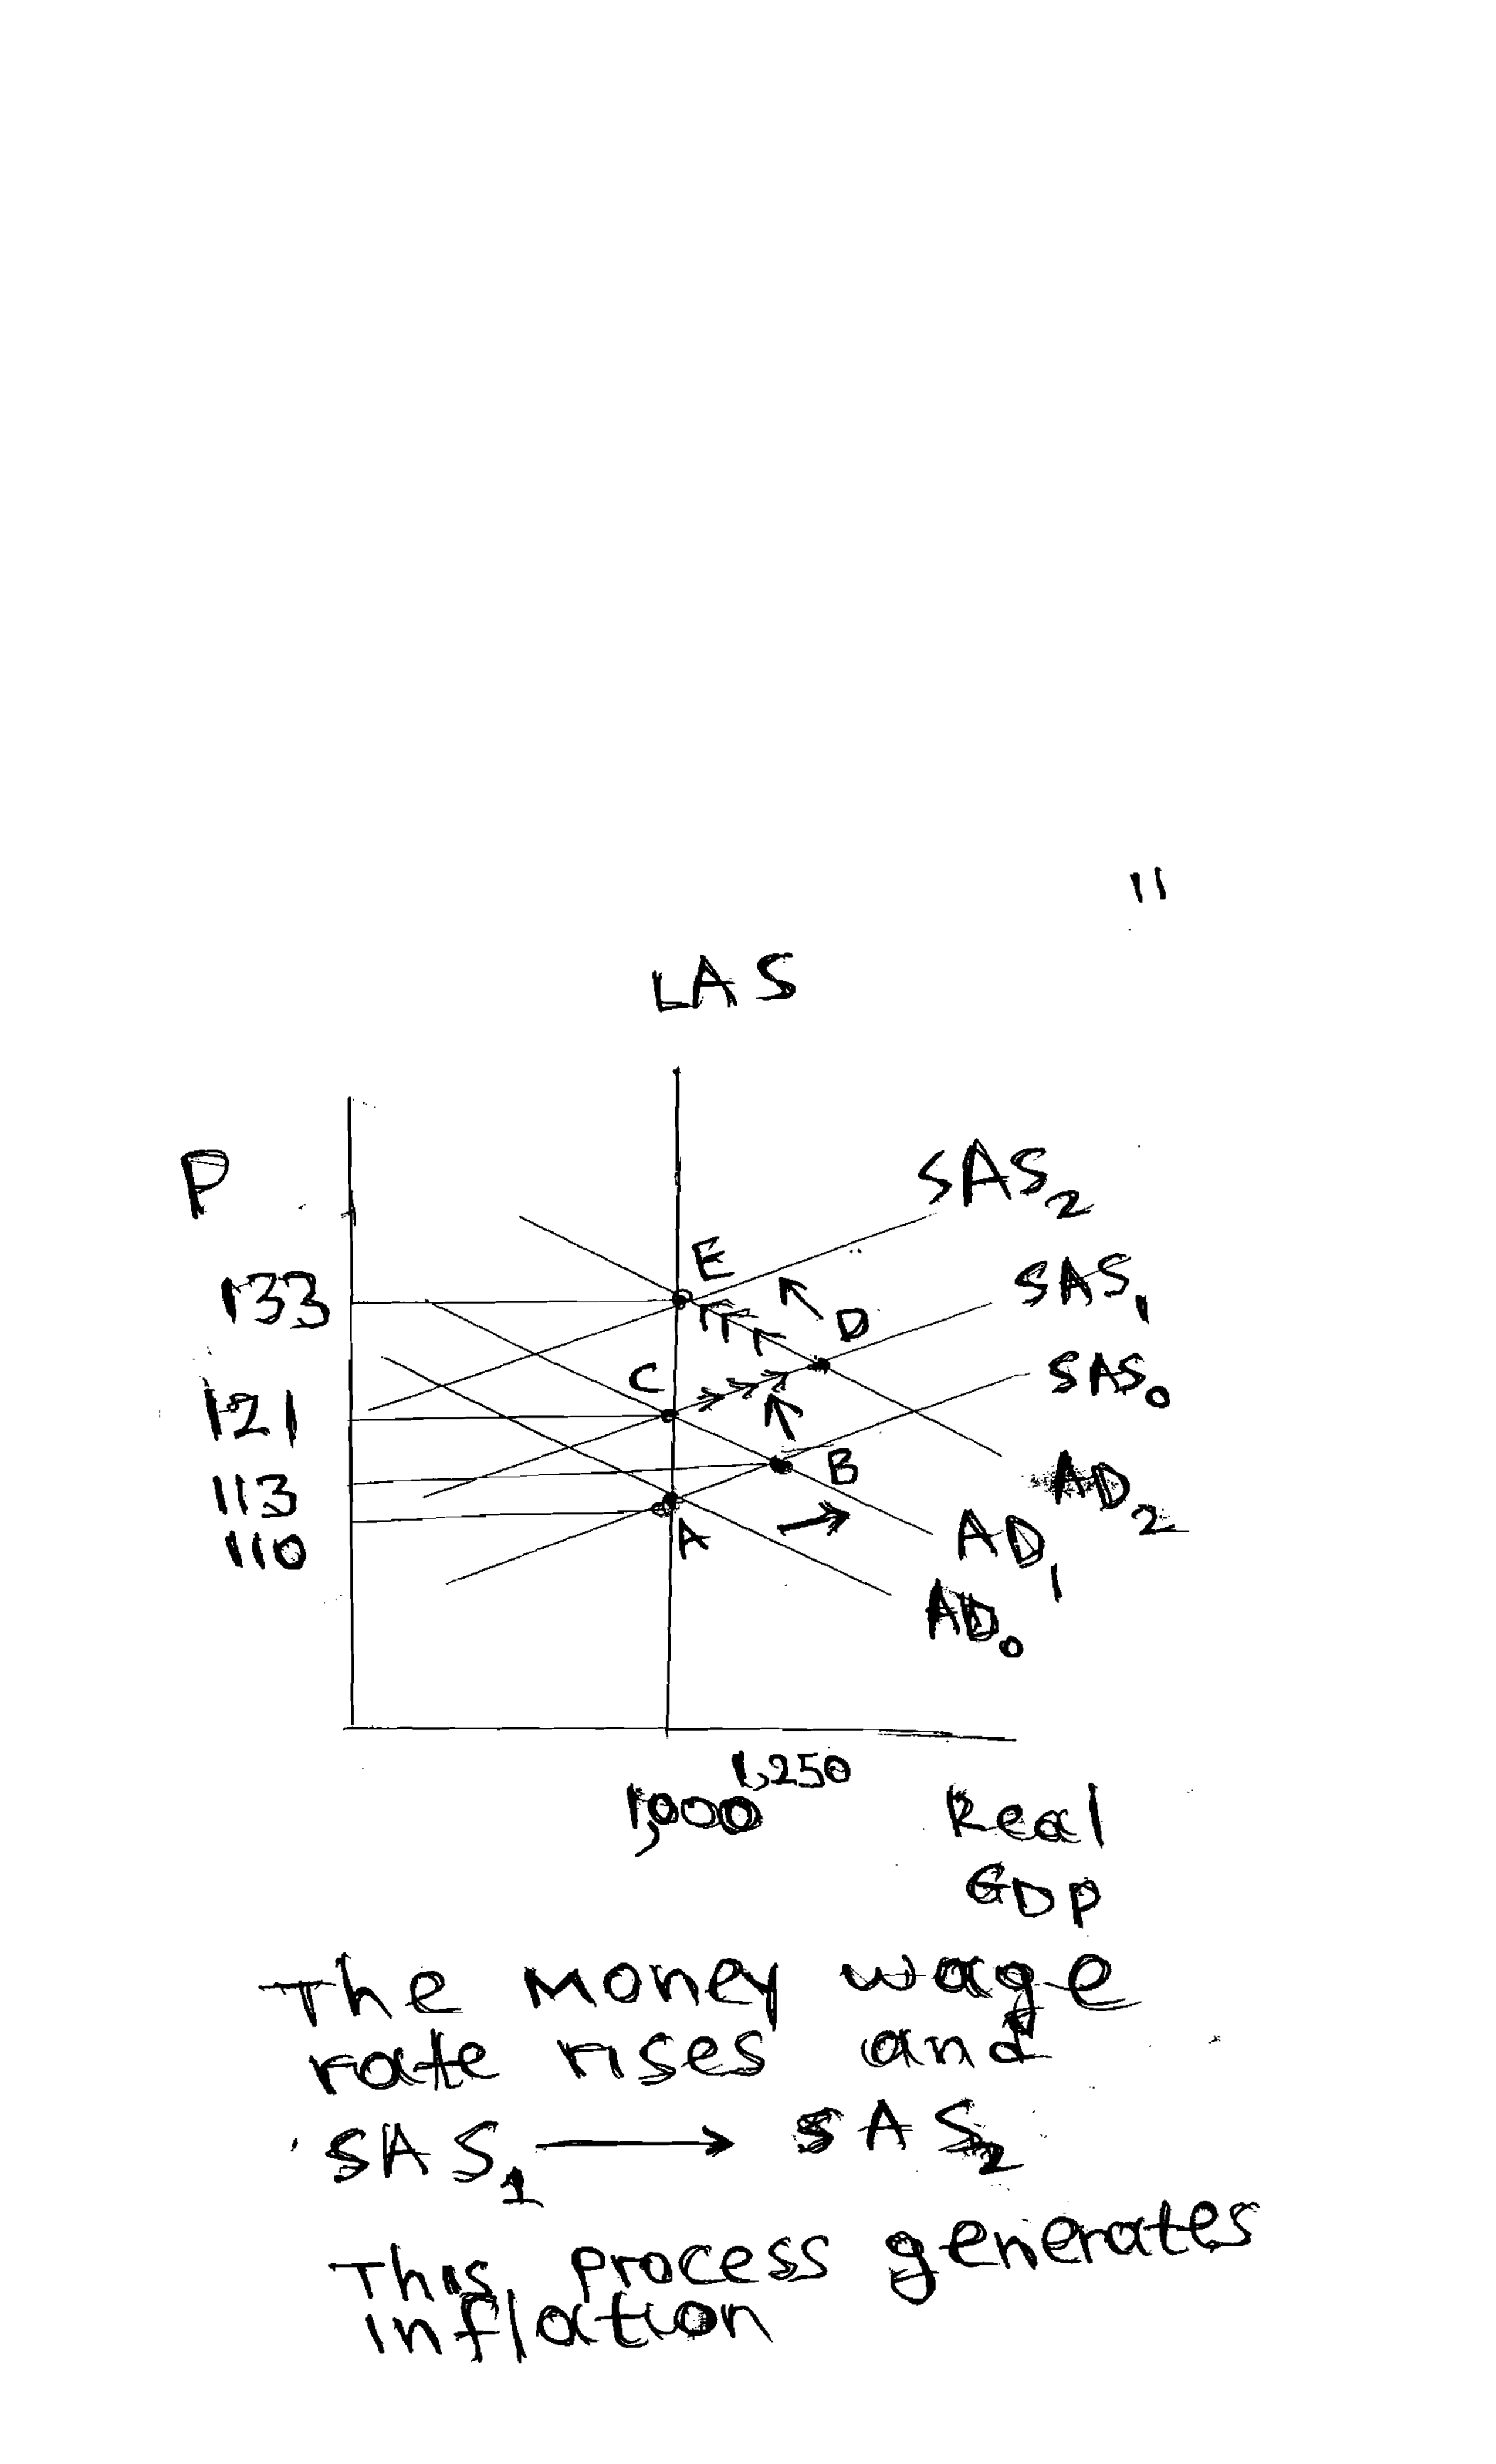 11
LAS
P
SAS₂
E
SAS₁
133
D
C
SAS₀
121
B
113
AD₂
A
AD₁
110
AD₀
1,250
1,000
Real
GDP
The money wage
rate rises and
SAS₁ → SAS₂
This process generates
inflation